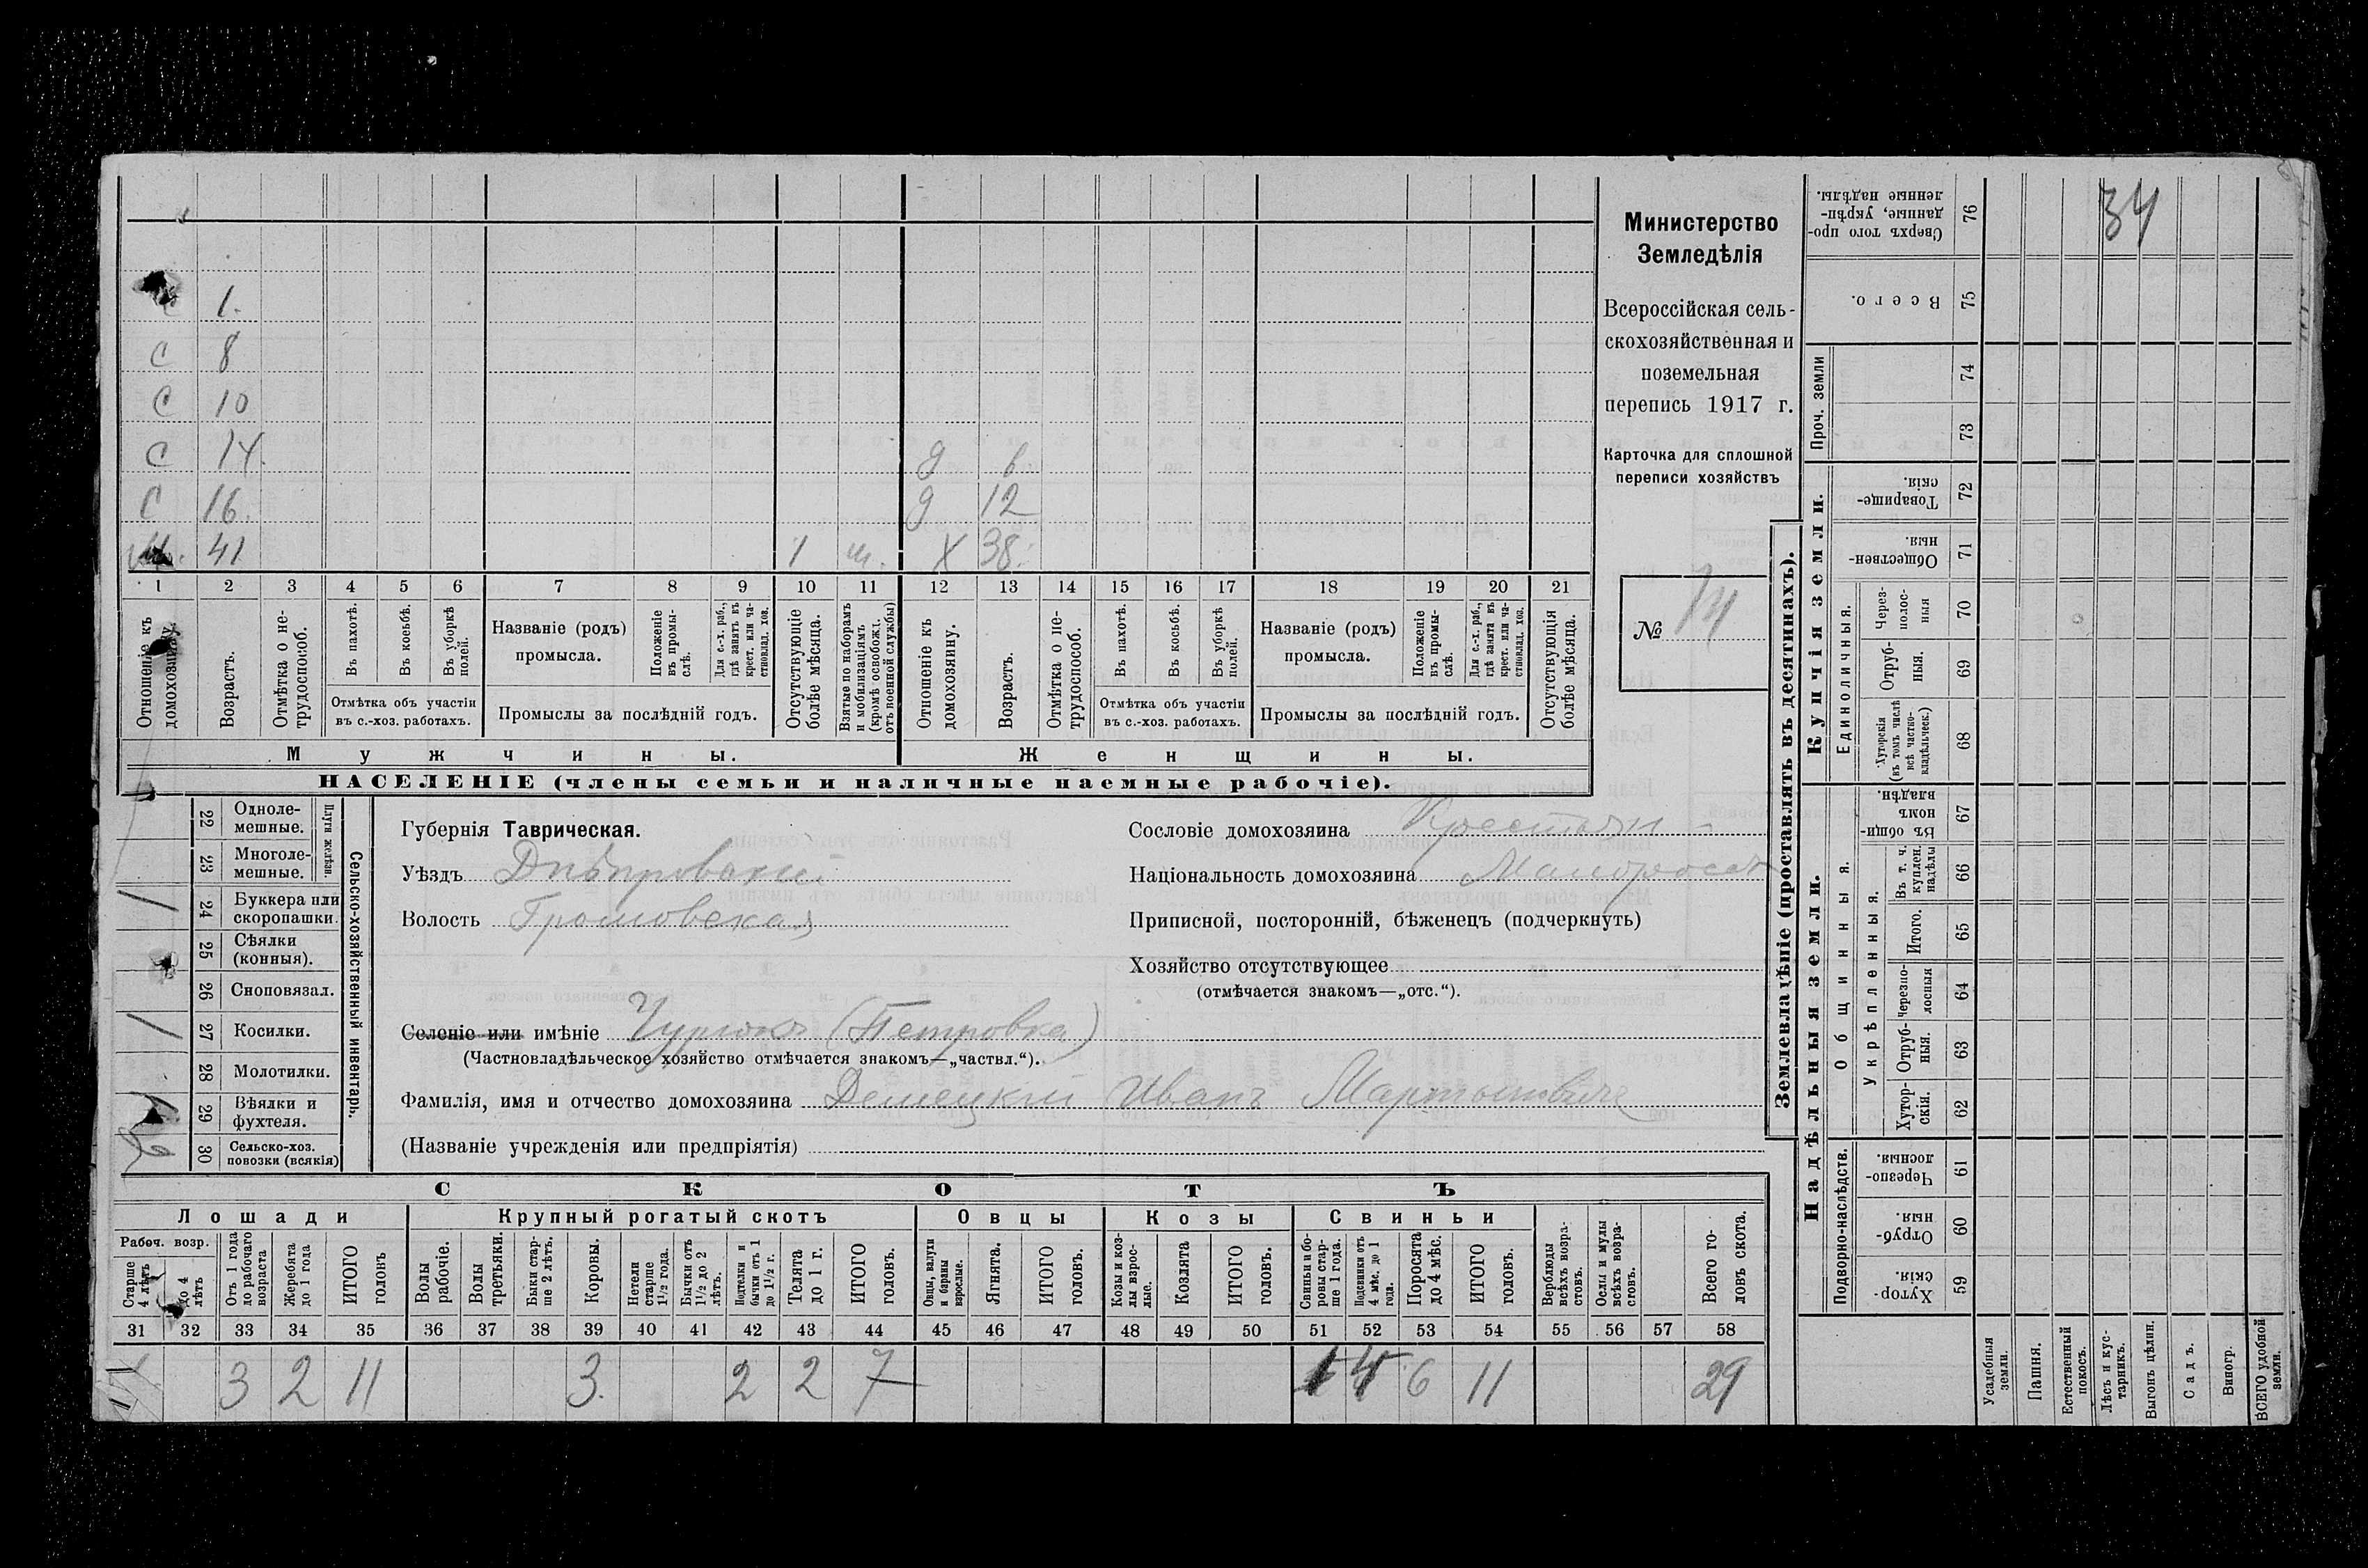 Министерство
Земледѣлія
Всероссійская сель-
скохозяйственная и
поземельная
перепись 1917 г.
Карточка для сплошной
переписи хозяйствъ
№ 74
1.
С 8
С 10
С 14. д 6
С 16. д 12
41 1 Х 38.
1 2 3 4 5 6 7 8 9 10 11 12 13 14 15 16 17 18 19 20 21
Отношеніе къ домохозяину.
Возрастъ.
Отмѣтка о не-трудоспособ.
Въ пахотѣ.
Въ косьбѣ.
Въ уборкѣ полей.
Отмѣтка объ участіи
въ с.-хоз. работахъ.
Названіе (родъ)
промысла.
Положеніе въ промы-слѣ.
Для с.-х. раб., гдѣ занятъ въ крест. или ча-стновлад. хоз.
Промыслы за послѣдній годъ.
Отсутствующіе болѣе мѣсяца.
Взятые по наборамъ и мобилизаціямъ (кромѣ освобожд. отъ военной службы)
Отношеніе къ домохозяину.
Возрастъ.
Отмѣтка о не-трудоспособ.
Въ пахотѣ.
Въ косьбѣ.
Въ уборкѣ полей.
Отмѣтка объ участіи
въ с.-хоз. работахъ.
Названіе (родъ)
промысла.
Положеніе въ промы-слѣ.
Для с.-х. раб., гдѣ занята въ крест. или ча-стновлад. хоз.
Промыслы за послѣдній годъ.
Отсутствующія болѣе мѣсяца.
Мужчины. Женщины.
НАСЕЛЕНІЕ (члены семьи и наличные наемные рабочіе).
Сельско-хозяйственный инвентарь.
Плуги желѣзн.
22 Одноле-мешные.
23 Многоле-мешные.
24 Буккера или скоропашки. 1
25 Сѣялки (конныя).
26 Сноповязал.
27 Косилки. 1
28 Молотилки.
29 Вѣялки и фухтеля.
30 Сельско-хоз. повозки (всякія)
Губернія Таврическая.
Уѣздъ Днѣпровскій
Волость Громовская
Сословіе домохозяина Крестьян
Національность домохозяина Малороссъ
Приписной, посторонній, бѣженецъ (подчеркнуть)
Хозяйство отсутствующее
(отмѣчается знакомъ—„отс.“).
Селеніе или имѣніе Чурюкъ (Петровка)
(Частновладѣльческое хозяйство отмѣчается знакомъ—„частвл.“).
Фамилія, имя и отчество домохозяина Демецкій Иванъ Мартыновичъ
(Названіе учрежденія или предпріятія)
СКОТЪ
Лошади Крупный рогатый скотъ Овцы Козы Свиньи
Рабоч. возр.
Старше 4 лѣтъ
До 4 лѣтъ
Отъ 1 года до рабочаго возраста
Жеребята до 1 года
ИТОГО головъ
Волы рабочіе.
Волы третьяки.
Быки стар-ше 2 лѣтъ.
Коровы.
Нетели старше 1½ года.
Бычки отъ 1½ до 2 лѣтъ.
Подтелки и бычки отъ 1 до 1½ г.
Телята до 1 г.
ИТОГО головъ.
Овцы, валухи и бараны взрослые.
Ягнята.
ИТОГО головъ.
Козы и коз-лы взрос-лые.
Козлята
ИТОГО головъ.
Свиньи и бо-ровы стар-ше 1 года.
Подсвинки отъ 4 мѣс. до 1 года.
Поросята до 4 мѣс.
ИТОГО головъ.
Верблюды всѣхъ возра-стовъ.
Ослы и мулы всѣхъ возра-стовъ.
Всего го-ловъ скота.
31 32 33 34 35 36 37 38 39 40 41 42 43 44 45 46 47 48 49 50 51 52 53 54 55 56 57 58
3 2 11 3. 2 2 7 6 11 29
Землевладѣніе (проставлять въ десятинахъ).
Купчія земли.
Надѣльныя земли.
Сверхъ того про-данные, укрѣп-ленные надѣлы. 76 34
Всего. 75
Проч. земли
74
73
Товарище-скія. 72
Обществен-ныя. 71
Единоличныя.
Через-полос-ныя 70
Отруб-ныя. 69
Хуторскія (въ томъ числѣ всѣ частно-владѣльческ.) 68
Общинныя.
Въ общин-номъ владѣн. 67
Укрѣпленныя.
Въ т. ч. куплен. надѣлы 66
Итого. 65
Черезпо-лосныя 64
Отруб-ныя. 63
Хутор-скія. 62
Подворно-наслѣдств.
Черезпо-лосныя. 61
Отруб-ныя. 60
Хутор-скія. 59
Усадебныя земли.
Пашня.
Естественный покосъ.
Лѣсъ и кус-тарникъ.
Выгонъ цѣлин.
Садъ.
Виногр.
ВСЕГО удобной земли.